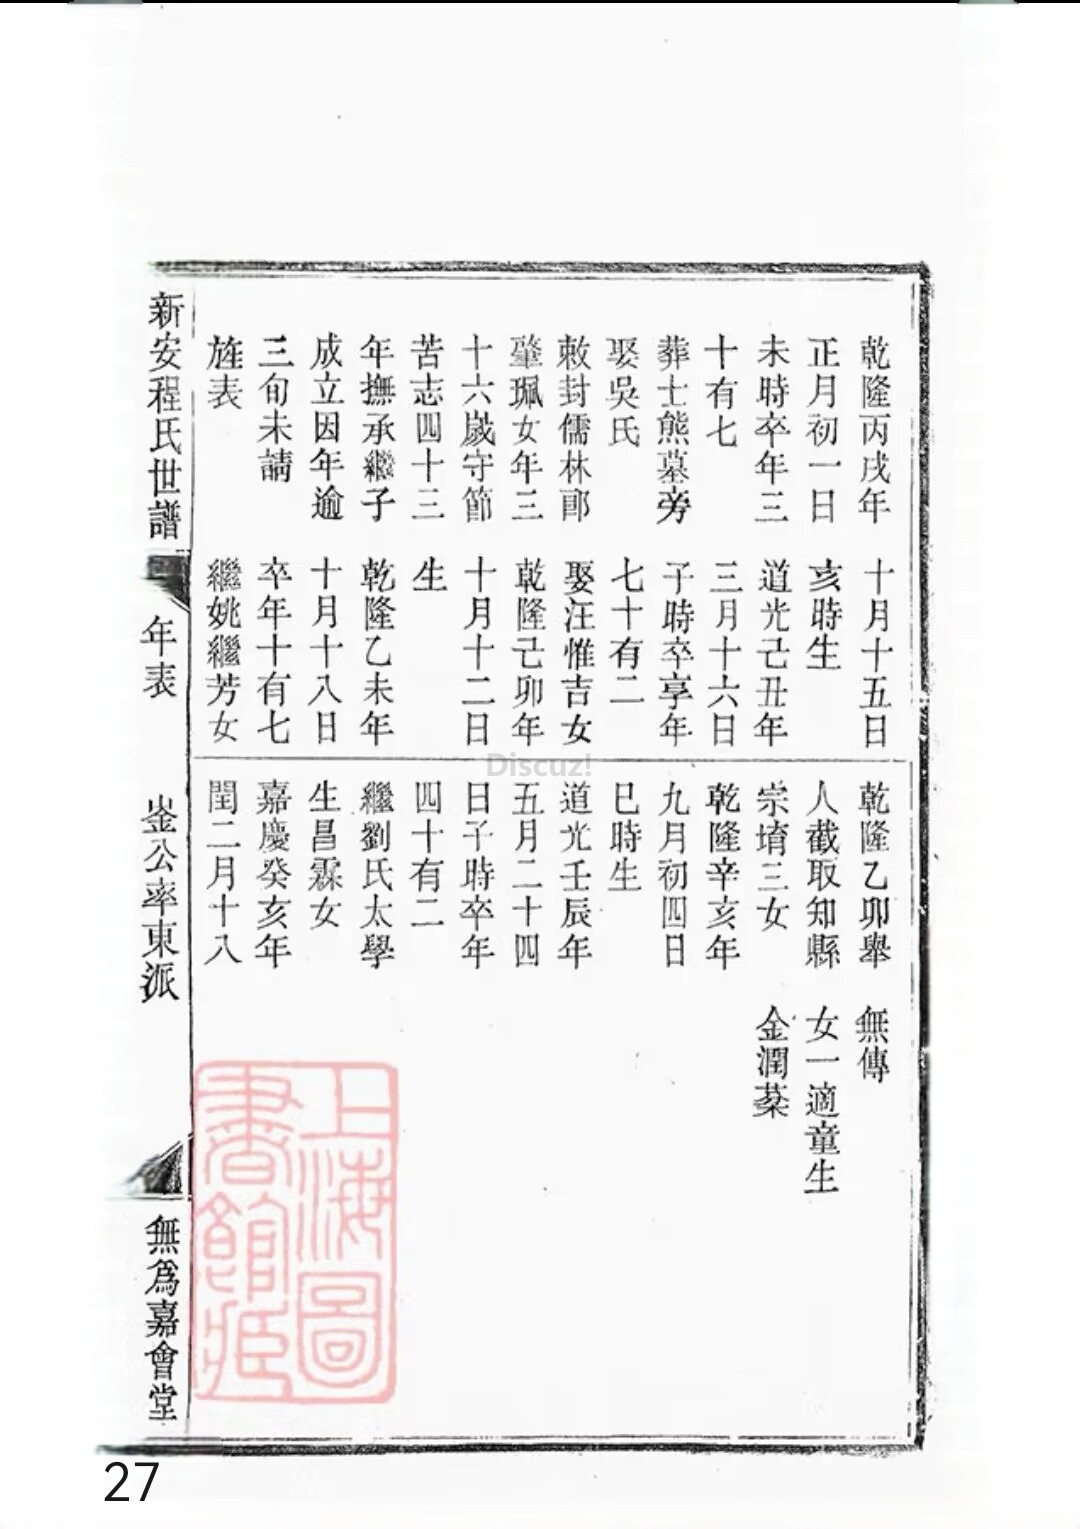 乾隆丙戌年
正月初一日
未時卒年三
十有七
葬士熊墓旁
娶吳氏
敕封儒林郎
肇珮女年三
十六歲守節
苦志四十三
年撫承繼子
成立因年逾
三旬未請
旌表
十月十五日
亥時生
道光己丑年
三月十六日
子時卒享年
七十有二
娶汪惟吉女
乾隆己卯年
十月十二日
生
乾隆乙未年
十月十八日
卒年十有七
繼姚繼芳女
乾隆乙卯舉
人截取知縣
宗堉三女
乾隆辛亥年
九月初四日
巳時生
道光壬辰年
五月二十四
日子時卒年
四十有二
繼劉氏太學
生昌霖女
嘉慶癸亥年
閏二月十八
無傳
女一適童生
金潤棻
新安程氏世譜
年表
崟公率東派
無爲嘉會堂
上海圖
書館藏
Discuz!
27